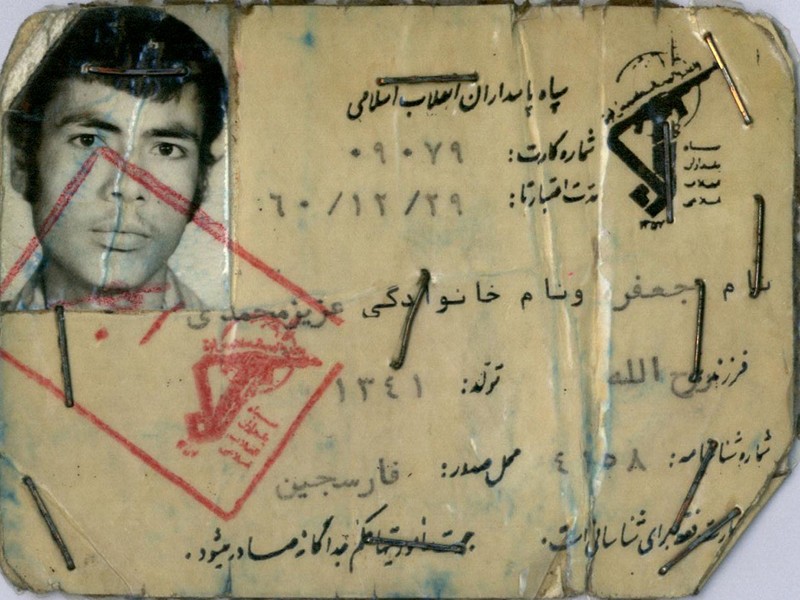 سپاه پاسداران انقلاب اسلامی
شماره کارت: ۰۹۰۷۹
مدت اعتبار تا: ۶۰/۱۲/۲۹
سپاه
پاسداران
انقلاب
اسلامی
نام جعفر ونام خانوادگی عزیزمحمدی
فرزند الله تولد: ۱۳٤۱
شماره شناسنامه: محل صدور: فارسجین
کارت فقط برای شناسائی است.
جهت حکم جداگانه صادر میشود.